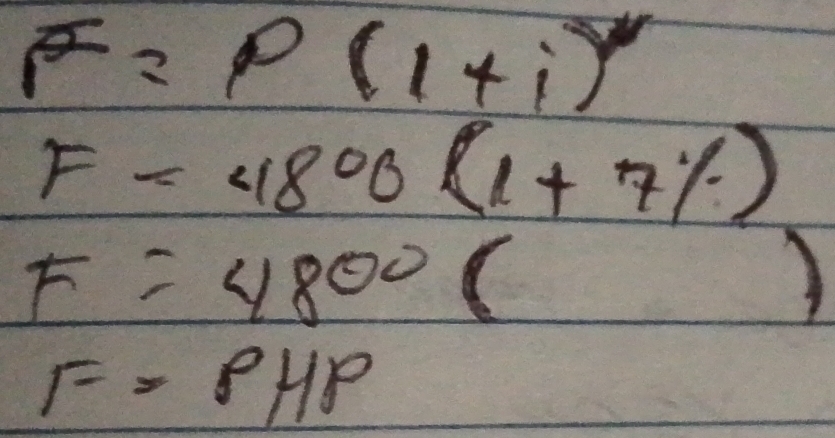 F = P (1 + i)
F = 4800 (1 + 7%)
F = 4800 (          )
F = PHP